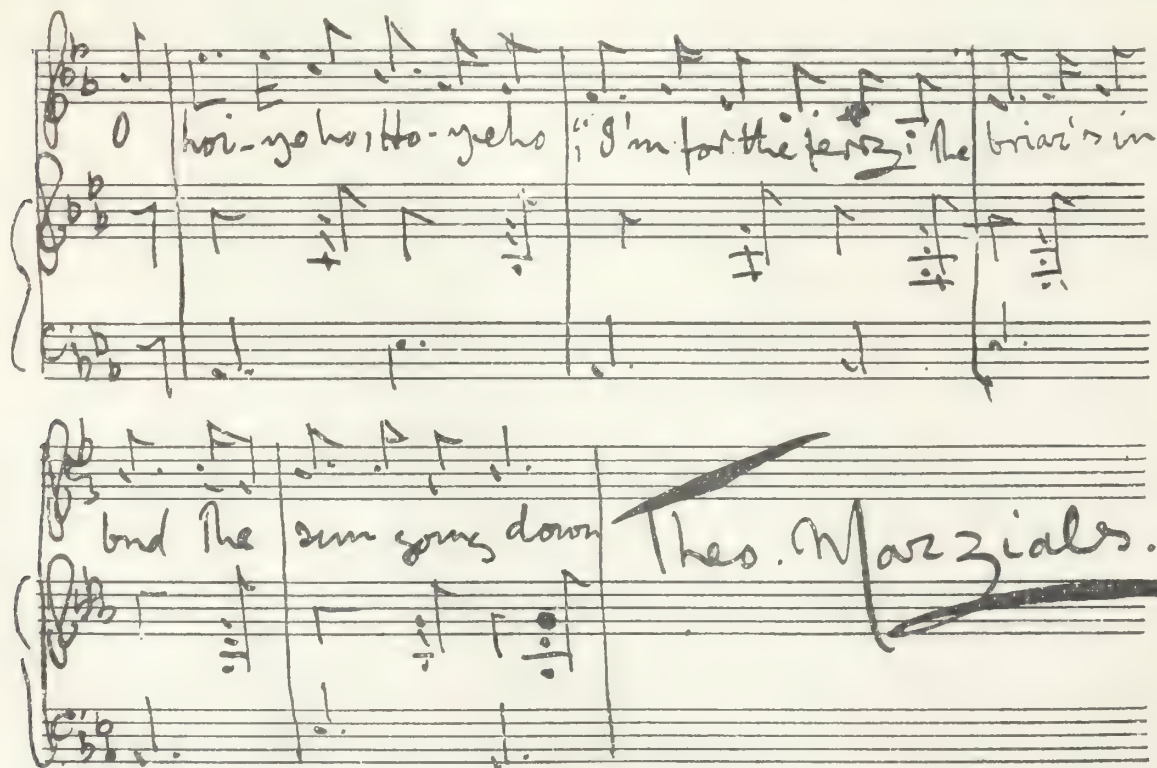 O hoi-ye ho, Ho-ye ho "I'm for the ferry; The briar's in
bud The sun going down
Theo. Marzials.